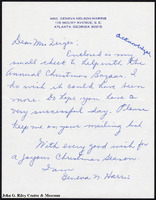 MRS. GENEVA NELSON HARRIS
ATLANTA, GEORGIA
Dear Mrs.
Enclosed is my
small check to help with the
Annual Christmas Bazaar. I
do wish it could have been
more. Do hope you have a
very successful day. Please
keep me on your mailing list.
With every good wish for
a Joyous Christmas Season
I am
Geneva N. Harris
John G. Riley Center & Museum